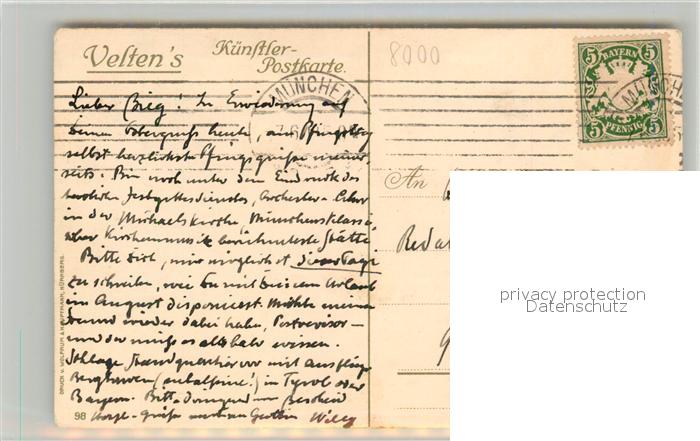 Velten's
Künstler-
Postkarte.
8000
MÜNCHEN
BAYERN
5 5
5 5
PFENNIG
MÜNCHEN
Lieber Bieg! In Erwiederung auf
Deinen Vorbergruß heute, am Pfingsttag
selbst herzlichste Pfingstgrüße meiner-
seits. Bin noch unter dem Eindruck des
herrlichen Festgottesdienstes, Orchester u. Chor
in der Michaelskirche, Münchens klassi-
scher Kirchenmusik berühmteste Stätte.
Bitte Dich, mir möglichst dieser Tage
zu schreiben, wie Du mit Deinem Urlaub
im August disponierst. Möchte meinen
Freund wieder dabei haben, Postrevisor –
und der muß es alsbald wissen.
Schlage Standquartier vor mit Ausflügen
Berghausen (subalpine!) in Tyrol oder
Bayern. Bitte dringend um Bescheid
Herzl. Grüße Willy
An
Reda
DRUCK v. WOLFRUM & HAUPTMANN, NÜRNBERG.
98
privacy protection
Datenschutz